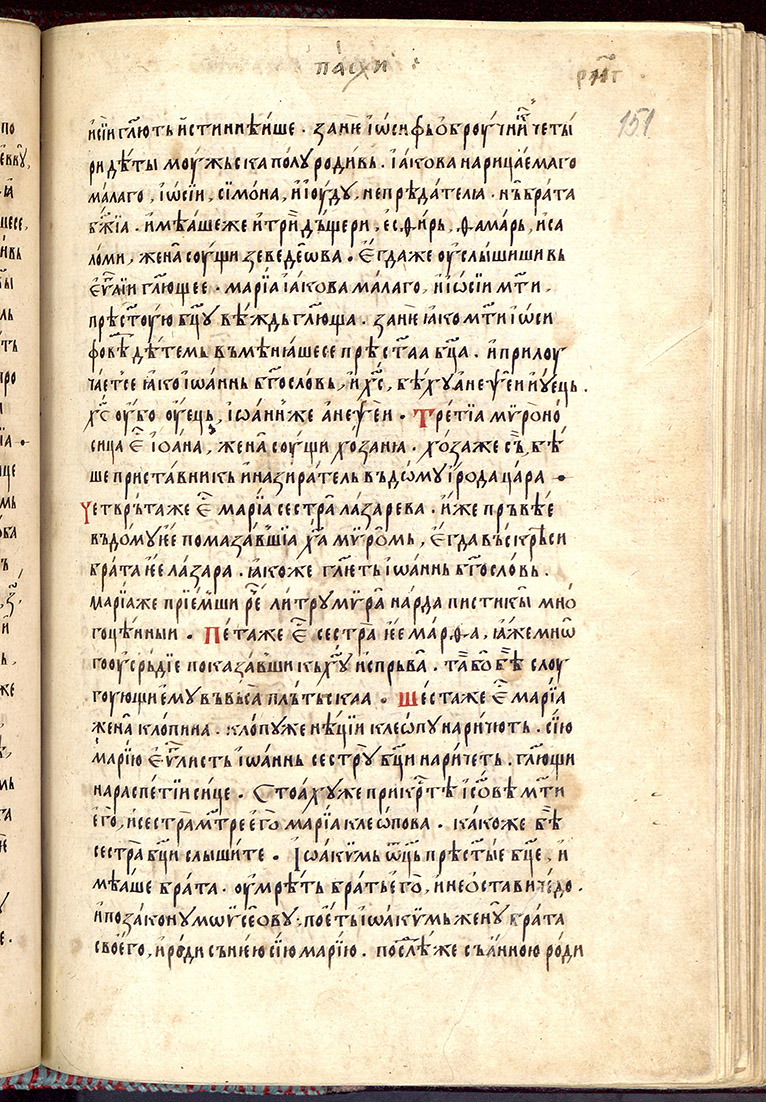 пасхи
рн҃г
151
и҆сі́и гл҃ють и҆стиннѣ́ише · зане́ і҆ѡ́сифь ѡ҆броучни́к четы́
ри дѣ́ты моу́жьска по́лу роди́вь · і҆а́кова нарица́емаго
ма́лаго , і҆ѡ́сіи , си́мѡна , и҆ і҆ѹ́ду , не прѣда́телꙗ · нь бра́та
бж҃їа · и҆мѣ́аше же и҆ три́ дь́щери , ес.ѳи́рь , ѳама́рь , и҆ са
ло́ми , жена̀ соу́щи зеведе́ѡва · Е҆гда́ же оу҆слы́шиши вь
е҆ѵⷢ҇лїи гл҃ющее · марі́а і҆а́кова ма́лаго , и҆ і҆ѡ́сіи мт҃и ,
прѣст҃ую бц҃у вѣ́ждь гл҃юща · зане́ ꙗ҆ко мт҃и і҆ѡ́си
фовѣ дѣ́темь вьмѣнꙗ́шесе прѣст҃аа бц҃а · и҆ прилоу
ча́етсе ꙗ҆ко і҆ѡа́ннь бг҃осло́вь , и҆ хс҃ , бѣ́ху а҆неѱе́и и҆ ѹ҆е́ць ·
хс҃ оу҆́бо оу҆е́ць , і҆ѡа́нн же а҆неѱе́и · Тре́тїа мѵроно́
сица е҆ⷭ҇ і҆ѡа́на , жена̀ соу́щи хо́заню · хо́за же съ̀ , бѣ́
ше приста́вникь и҆ назира́тель вь до́му і҆́рода ца́ра ·
Четврь́та же е҆ⷭ҇ марі́а сестра̀ ла́зарева · и҆́же прь́вѣе
вь до́му ѥе помаза́вшїа ха҃ мѵ́ромь , е҆гда́ вьскрѣ́си
бра́та ѥе ла́зара · ꙗ҆коже гл҃ѥть і҆ѡа́ннь бг҃осло́вь ·
марі́а же прїе́мши рⷱ҇е ли́тру мѵ́ра на́рда писти́кы мно
гоцѣ́нныи · Пе́та же е҆ⷭ҇ сестра̀ ѥе ма́рѳа , ꙗ҆́же мнѡ
го оу҆срь́дїе показа́вши кь хоу҃ и҆спрьва · та́ бо бѣ̀ слоу
гоующи є҆му вь вьса́ пль́тьскаа · Ше́ста же е҆ⷭ҇ марі́а
жена̀ кло́пина · кло́пу же нѣ́ции клео́пу нари́чють · сїю
марі́ю е҆ѵⷢ҇листь і҆ѡа́ннь сестру̀ бц҃и нари́четь · гл҃ющи
на распе́тїи си́це · Стоа́ху же при крⷭ҇тѣ і҆со́вѣ мт҃и
е҆го̀ , и҆ сестра̀ мт҃ре е҆го̀ марі́а клео́пова · ка́ко же бѣ̀
сестра̀ бц҃и слы́шите · І҆ѡакѵ́мь ѻц҃ь прѣст҃ые бц҃е , и
мѣ́аше бра́та · оу҆мрѣ́ть бра́ть е҆го̀ , и҆ не ѡ҆ста́ви че́до ·
и҆ по зако́ну мѡѵсе́ѡву , пое́ть і҆ѡакѵ́мь жену̀ бра́та
своего̀ , и҆ родѝ сь не́ю сїю марі́ю · посль́же сь а҆́нною роди